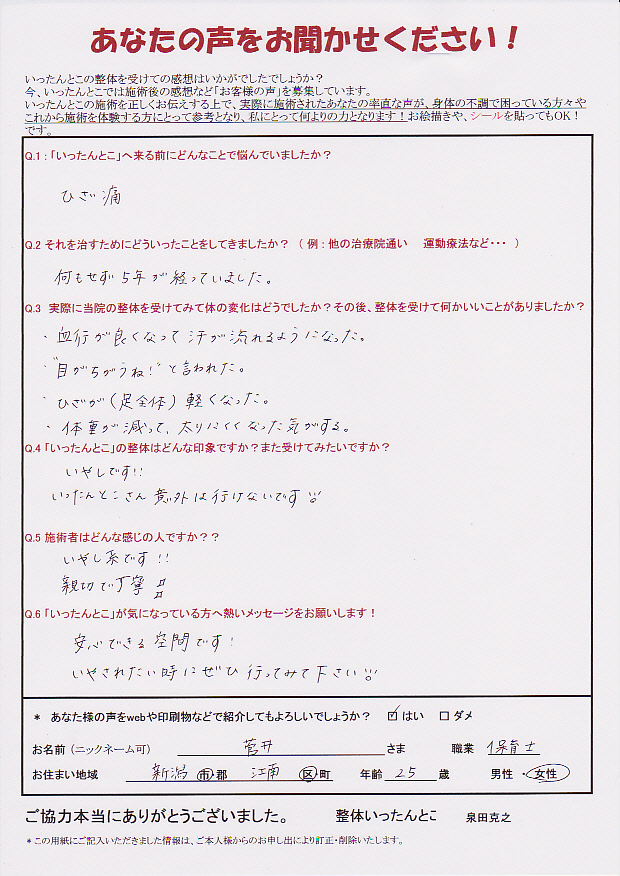 あなたの声をお聞かせください！
いったんとこの整体を受けての感想はいかがでしたでしょうか？
今、いったんとこでは施術後の感想など「お客様の声」を募集しています。
いったんとこの施術を正しくお伝えする上で、実際に施術されたあなたの率直な声が、身体の不調で困っている方々や
これから施術を体験する方にとって参考となり、私にとって何よりの力となります！お絵描きや、シールを貼ってもOK！
です。
Q.1：「いったんとこ」へ来る前にどんなことで悩んでいましたか？
ひざ痛
Q.2 それを治すためにどういったことをしてきましたか？（ 例：他の治療院通い　運動療法など・・・ ）
何もせず5年が経っていました。
Q.3 実際に当院の整体を受けてみて体の変化はどうでしたか？その後、整体を受けて何かいいことがありましたか？
・血行が良くなって汗が流れるようになった。
・"目がちがうね！"と言われた。
・ひざが（足全体）軽くなった。
・体重が減って、太りにくくなった気がする。
Q.4 「いったんとこ」の整体はどんな印象ですか？また受けてみたいですか？
いやしです!!
いったんとこさん意外は行けないです!!
Q.5 施術者はどんな感じの人ですか？？
いやし系です!!
親切で丁寧♫
Q.6 「いったんとこ」が気になっている方へ熱いメッセージをお願いします！
安心できる空間です！
いやされたい時にぜひ行ってみて下さい!!
* あなた様の声をwebや印刷物などで紹介してもよろしいでしょうか？ ☑はい □ダメ
お名前（ニックネーム可） 菅井 さま 職業 保育士
お住まい地域 新潟 市・郡 江南 区・町 年齢 25 歳 男性・女性
ご協力本当にありがとうございました。 整体いったんとこ 泉田克之
*この用紙にご記入いただきました情報は、ご本人様からのお申し出により訂正・削除いたします。